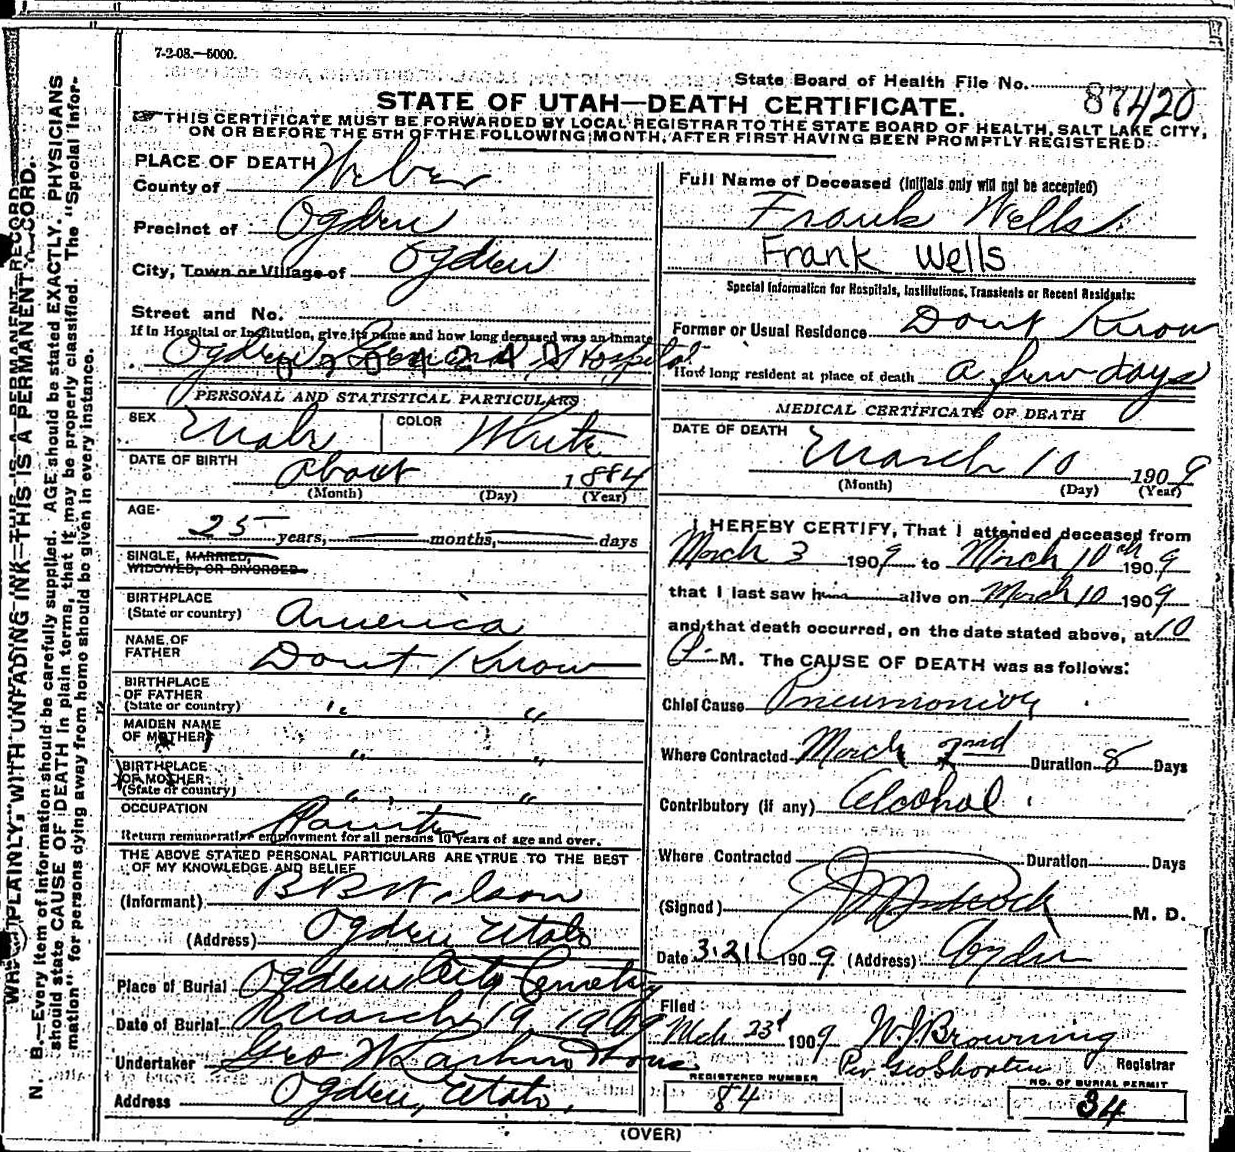 7-2-08.—5000.
State Board of Health File No. 87420
STATE OF UTAH—DEATH CERTIFICATE.
THIS CERTIFICATE MUST BE FORWARDED BY LOCAL REGISTRAR TO THE STATE BOARD OF HEALTH, SALT LAKE CITY,
ON OR BEFORE THE 5TH OF THE FOLLOWING MONTH, AFTER FIRST HAVING BEEN PROMPTLY REGISTERED.
PLACE OF DEATH
County of Weber
Precinct of Ogden
City, Town or Village of Ogden
Street and No.
If in Hospital or Institution, give its name and how long deceased was an inmate
Ogden General Hospital
PERSONAL AND STATISTICAL PARTICULARS
SEX Male COLOR White
DATE OF BIRTH About 1884
(Month) (Day) (Year)
AGE
25 years, months, days
SINGLE, MARRIED,
WIDOWED, OR DIVORCED
BIRTHPLACE
(State or country) America
NAME OF
FATHER Dont Know
BIRTHPLACE
OF FATHER
(State or country) " "
MAIDEN NAME
OF MOTHER " "
BIRTHPLACE
OF MOTHER
(State or country) " "
OCCUPATION Painter
Return remunerative employment for all persons 10 years of age and over.
THE ABOVE STATED PERSONAL PARTICULARS ARE TRUE TO THE BEST
OF MY KNOWLEDGE AND BELIEF
(Informant) B B Wilson
(Address) Ogden Utah
Place of Burial Ogden City Cemetery
Date of Burial March 19, 1909
Undertaker Geo W Larkin & Sons
Address Ogden, Utah.
Full Name of Deceased (Initials only will not be accepted)
Frank Wells
Frank Wells
Special Information for Hospitals, Institutions, Transients or Recent Residents:
Former or Usual Residence Dont Know
How long resident at place of death a few days
MEDICAL CERTIFICATE OF DEATH
DATE OF DEATH
March 10 1909
(Month) (Day) (Year)
I HEREBY CERTIFY, That I attended deceased from
March 3 1909 to March 10th 1909
that I last saw him alive on March 10 1909
and that death occurred, on the date stated above, at 10
P. M. The CAUSE OF DEATH was as follows:
Chief Cause Pneumonia
Where Contracted March 2nd Duration 8 Days
Contributory (if any) Alcohol
Where Contracted Duration Days
(Signed) M. D.
Date 3-21 1909 (Address) Ogden
Filed
Mch 23d 1909 W. J. Browning
Per Geo Shorten Registrar
REGISTERED NUMBER
84
NO. OF BURIAL PERMIT
34
(OVER)
WRITE PLAINLY, WITH UNFADING INK—THIS IS A PERMANENT RECORD.
N. B.—Every item of information should be carefully supplied. AGE should be stated EXACTLY. PHYSICIANS
should state CAUSE OF DEATH in plain terms, that it may be properly classified. The "Special Infor-
mation" for persons dying away from home should be given in every instance.